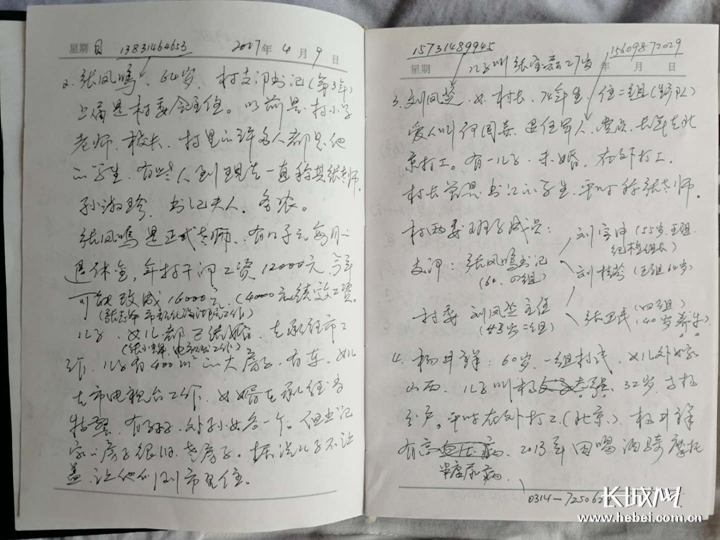 星期日 13831464653 2017年4月9日
2. 张凤鸣，64岁，村支部书记（第3年）
上届是村委会主任。以前是村小学
老师、校长。村里的许多人都是他
的学生，有些人到现在一直称其张老师。
孙淑珍 书记夫人，务农。
张凤鸣是正式老师，有4千元每月
退休金，年村干部工资12000元 今年
可能改成16000元（4000元绩效工资）
儿子、女儿都已结婚，在承德市工
作，儿子有400m²的大房子，有车。女儿
在市电视台工作，女婿在承德当
特警。有孙子、外孙女各一个。但书记
家的房子很旧，老房子。据说儿子不让
盖，让他们到市里住。
15731489945 15609872029
星期 年 月 日
儿子叫张 27岁
3. 刘凤芝，女，村长，74年生，住二组（生产队）
爱人叫何国 退伍军人，党员，去年在北
京打工。有一儿子，未婚，在外打工。
村长曾是书记的学生，平时称张老师。
村两委班子成员：
支部：张凤鸣书记
（60，四组）
刘宝 （55岁，五组
纪检组长）
刘桂 （五组 60岁）
村委 刘凤芝主任
（43岁二组）
张卫民（四组）
（40岁养牛）
4. 杨井祥：60岁，一组村民，女儿外嫁
山西，儿子叫杨 32岁
分户。平时在外打工（北京）。杨井祥
有高血压病 2013年因喝酒骑摩托
糖尿病
0314—72506
长城网
www.hebei.com.cn